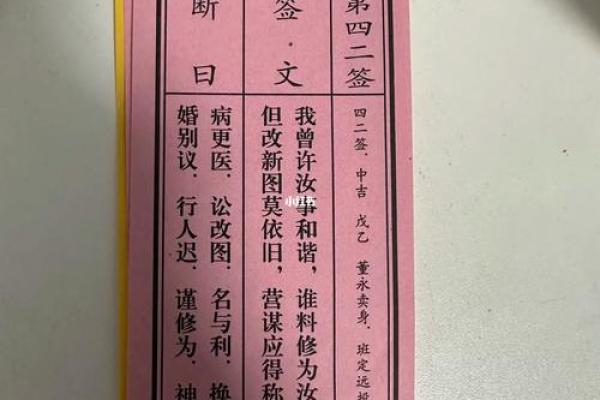 第四二签
四二签．中吉 戊乙 董永卖身．班定远
签·文
我曾许汝事和谐，谁料修为汝
但改新图莫依旧，营谋应得称
断曰
病更医．讼改图．名与利．换
婚别议．行人迟．谨修为．神
小红书